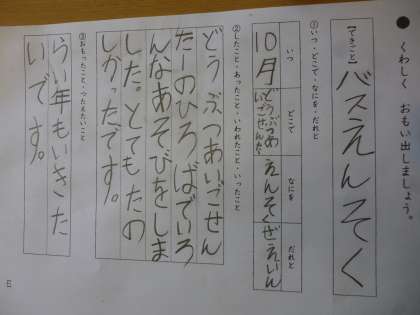 ● くわしく おもい出しましょう。
【できごと】 バスえんそく
①いつ・どこで・なにを・だれと
いつ どこで なにを だれと
10月 どうぶつあいごせんたー えんそく ぜんいん
②したこと・あったこと・いわれたこと・いったこと
どうぶつあいごせん
たーのひろばでいろ
んなあそびをしま
した。とてもたの
しかったです。
③おもったこと・つたえたいこと
らい年もいきた
いです。